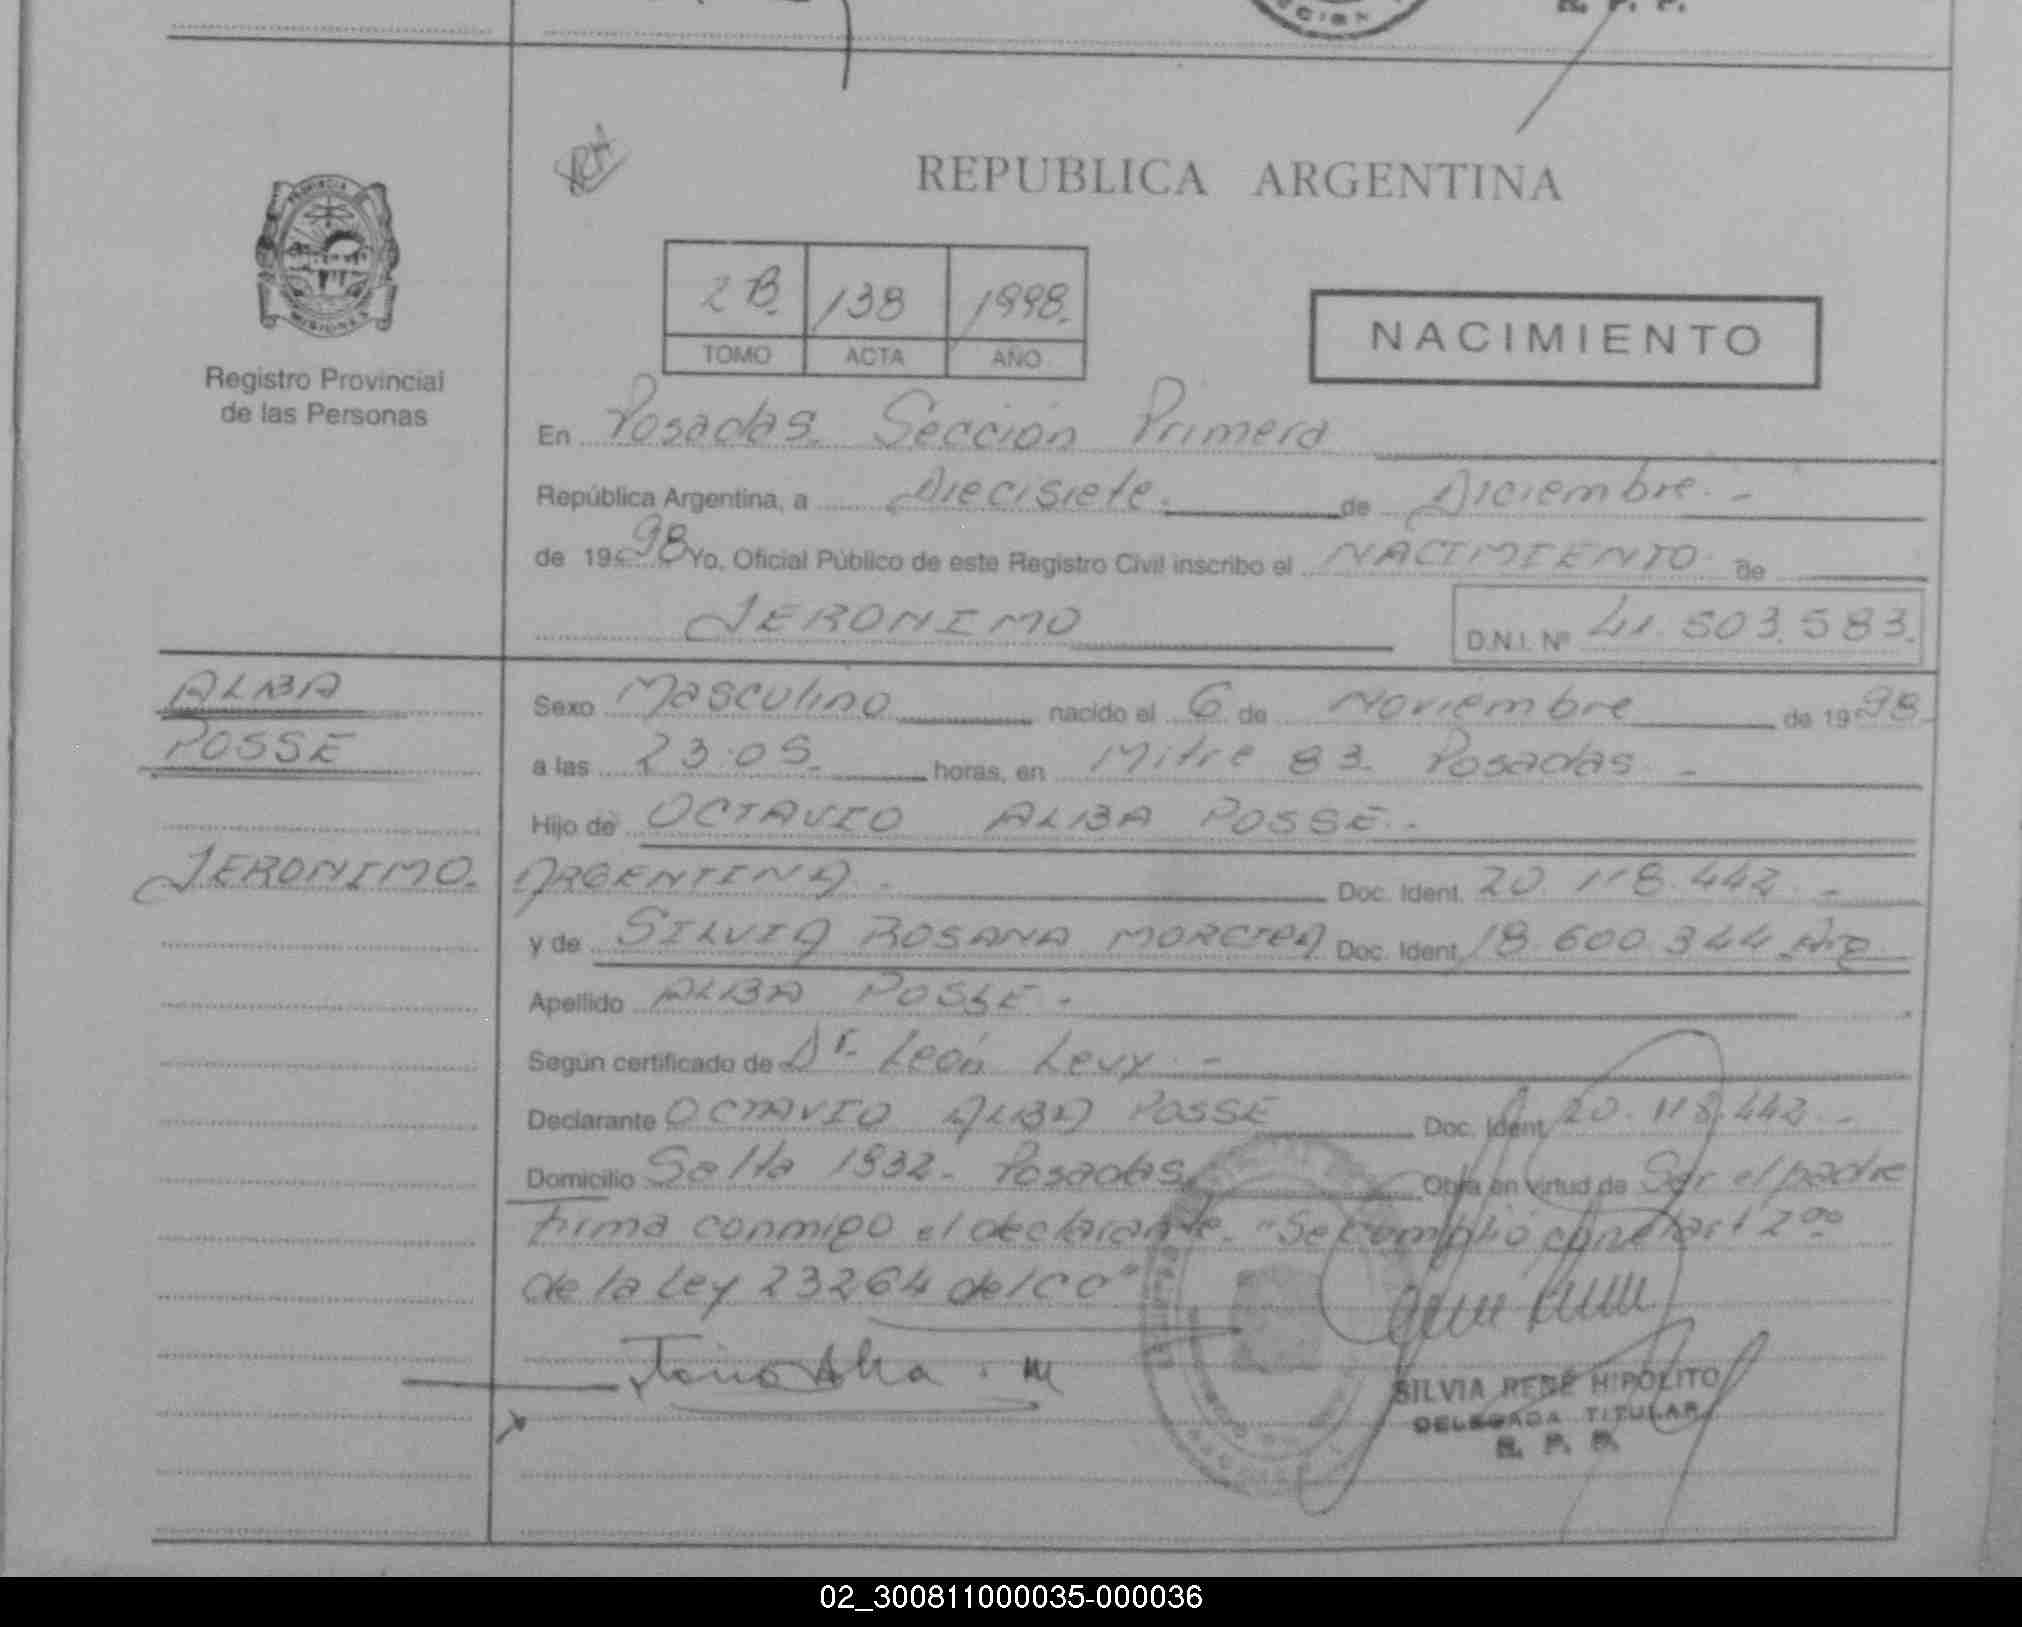 REPUBLICA ARGENTINA
PROVINCIA
MISIONES
Registro Provincial
de las Personas
2 B. 138 1998.
TOMO ACTA AÑO
NACIMIENTO
En Posadas. Sección Primera
República Argentina, a Diecisiete. de Diciembre. -
de 1998 Yo, Oficial Público de este Registro Civil inscribo el NACIMIENTO de
JERONIMO D.N.I. Nº 41.503.583.
ALBA
POSSE
JERONIMO.
Sexo Masculino nacido el 6 de Noviembre de 1998.
a las 23.05. horas, en Mitre 83. Posadas -
Hijo de OCTAVIO ALBA POSSE.-
ARGENTINA. Doc. Ident. 20.118.442. -
y de SILVIA ROSANA Doc. Ident. 18.600.344 Arg
Apellido ALBA POSSE.
Según certificado de Dr. León Levy. -
Declarante OCTAVIO ALBA POSSE Doc. Ident. 20.118.442. -
Domicilio Salta 1932. Posadas Obra en virtud de Ser el padre
Firma conmigo el declarante. "Se cumplió con el art 2º
de la Ley 23264 del CC"
SILVIA RENÉ HIPOLITO
DELEGADA TITULAR
R. P. P.
02_300811000035-000036